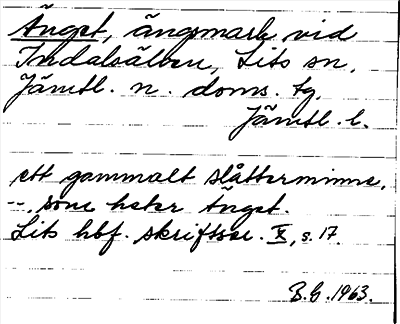 Änget, ängsmark vid
Indalsälven, Lits sn,
Jämtl. n. doms. tg,
Jämtl. l.
ett gammalt slåtterminne,
--, som heter Änget.
Lits hbf. skriftser. X, s. 17.
B.G. 1963.